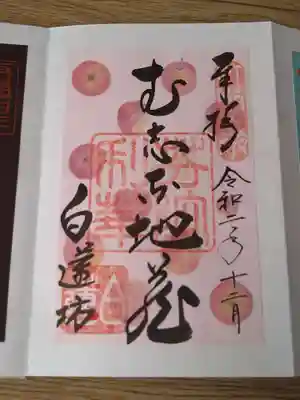 奉拝 令和二年十二月
む志な地蔵
白蓮坊